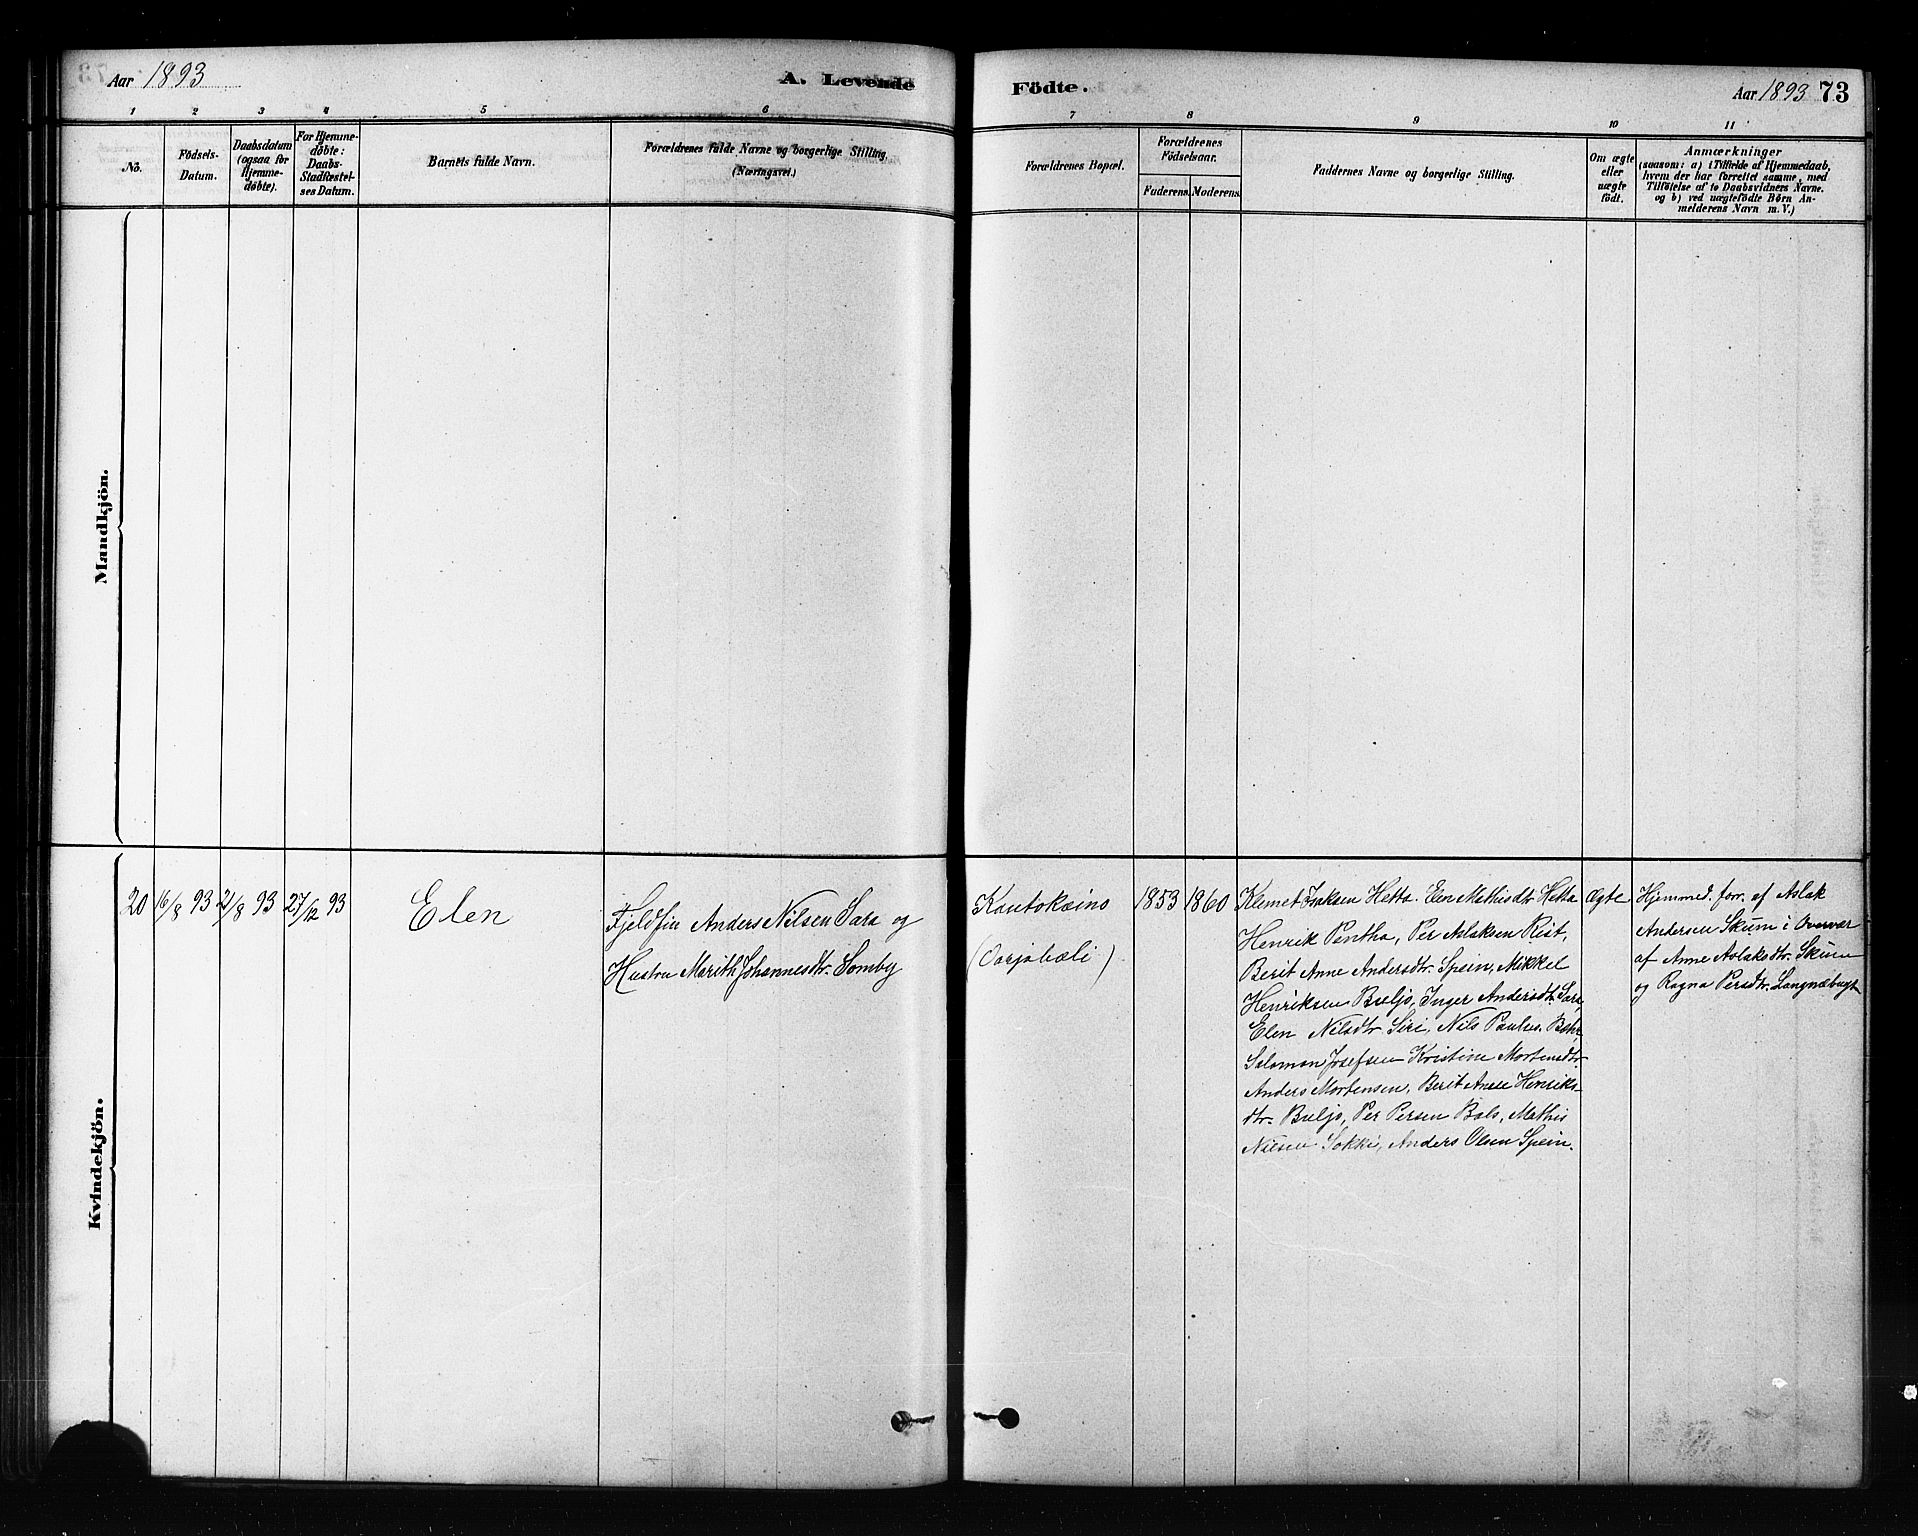 Aar 1893
A. Levende
Födte.
Aar 1893 73
1 2 3 4 5 6 7 8 9 10 11
No.
Födsels-
Datum.
Daabsdatum
(ogsaa for
Hjemme-
döbte).
For Hjemme-
döbte:
Daabs-
Stadfæstel-
ses Datum.
Barnets fulde Navn.
Forældrenes fulde Navne og borgerlige Stilling.
(Næringsvei.)
Forældrenes Bopæl.
Forældrenes
Födselsaar.
Faderens. Moderens.
Faddernes Navne og borgerlige Stilling.
Om ægte
eller
uægte
født.
Anmærkninger
(saasom: a) i Tilfælde af Hjemmedaab,
hvem der har forrettet samme, med
Tilföielse af to Daabsvidners Navne.
og b) ved uægtefödte Börn An-
melderens Navn m. V.)
Mandkjön.
Kvindekjön.
20
16/8 93
21/8 93
27/12 93
Elen
Fjeldfin Anders Nilsen Sara og
Hustru Marith Johannesdtr. Somby
Kautokeino
(Oarjabæli)
1853
1860
Klemet Isaksen Hetta. Elen Mathisdtr Hetta
Henrik Pentha, Per Aslaksen Rist,
Berit Anne Andersdtr. Spein, Mikkel
Henriksen Buljo, Inger Andersdt. Sara,
Elen Nilsdtr. Siri, Nils Paulus. Bær,
Salomon Josefsen Kristine Mortensdtr.
Anders Mortensen, Berit Anne Henriks-
dtr. Buljo, Per Persen Bals, Mathis
Nilsen Sokki, Anders Olsen Spein.
Ægte
Hjemmed. forr. af Aslak
Andersen Skum i Overvær
af Anne Aslaksdtr. Skum
og Ragna Persdtr. Langnæbugt